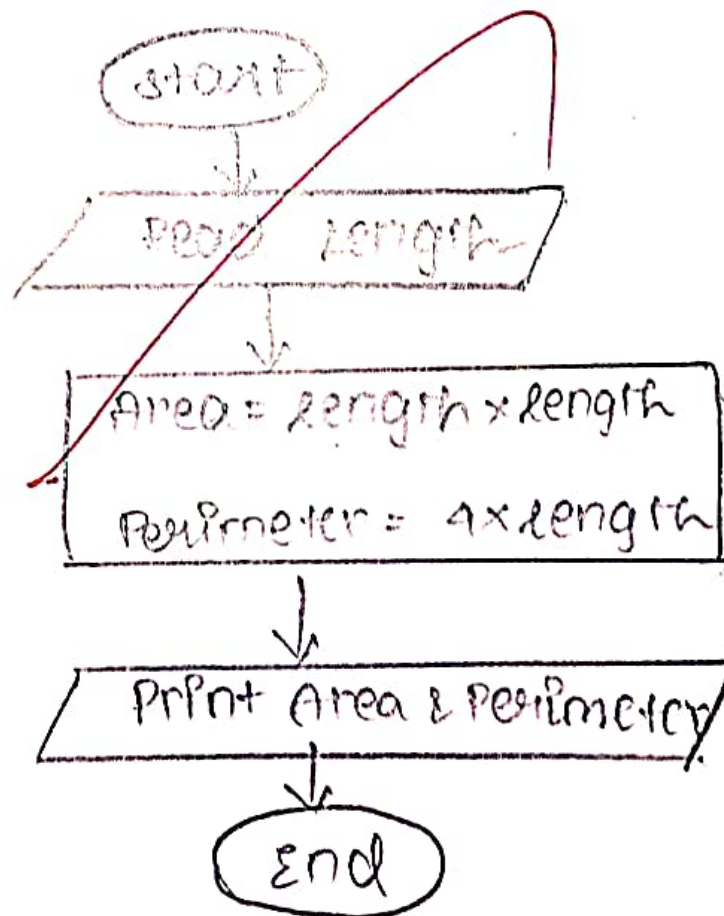 Start
Read Length
Area = Length × Length
Perimeter = 4 × Length
Print Area & Perimeter
End